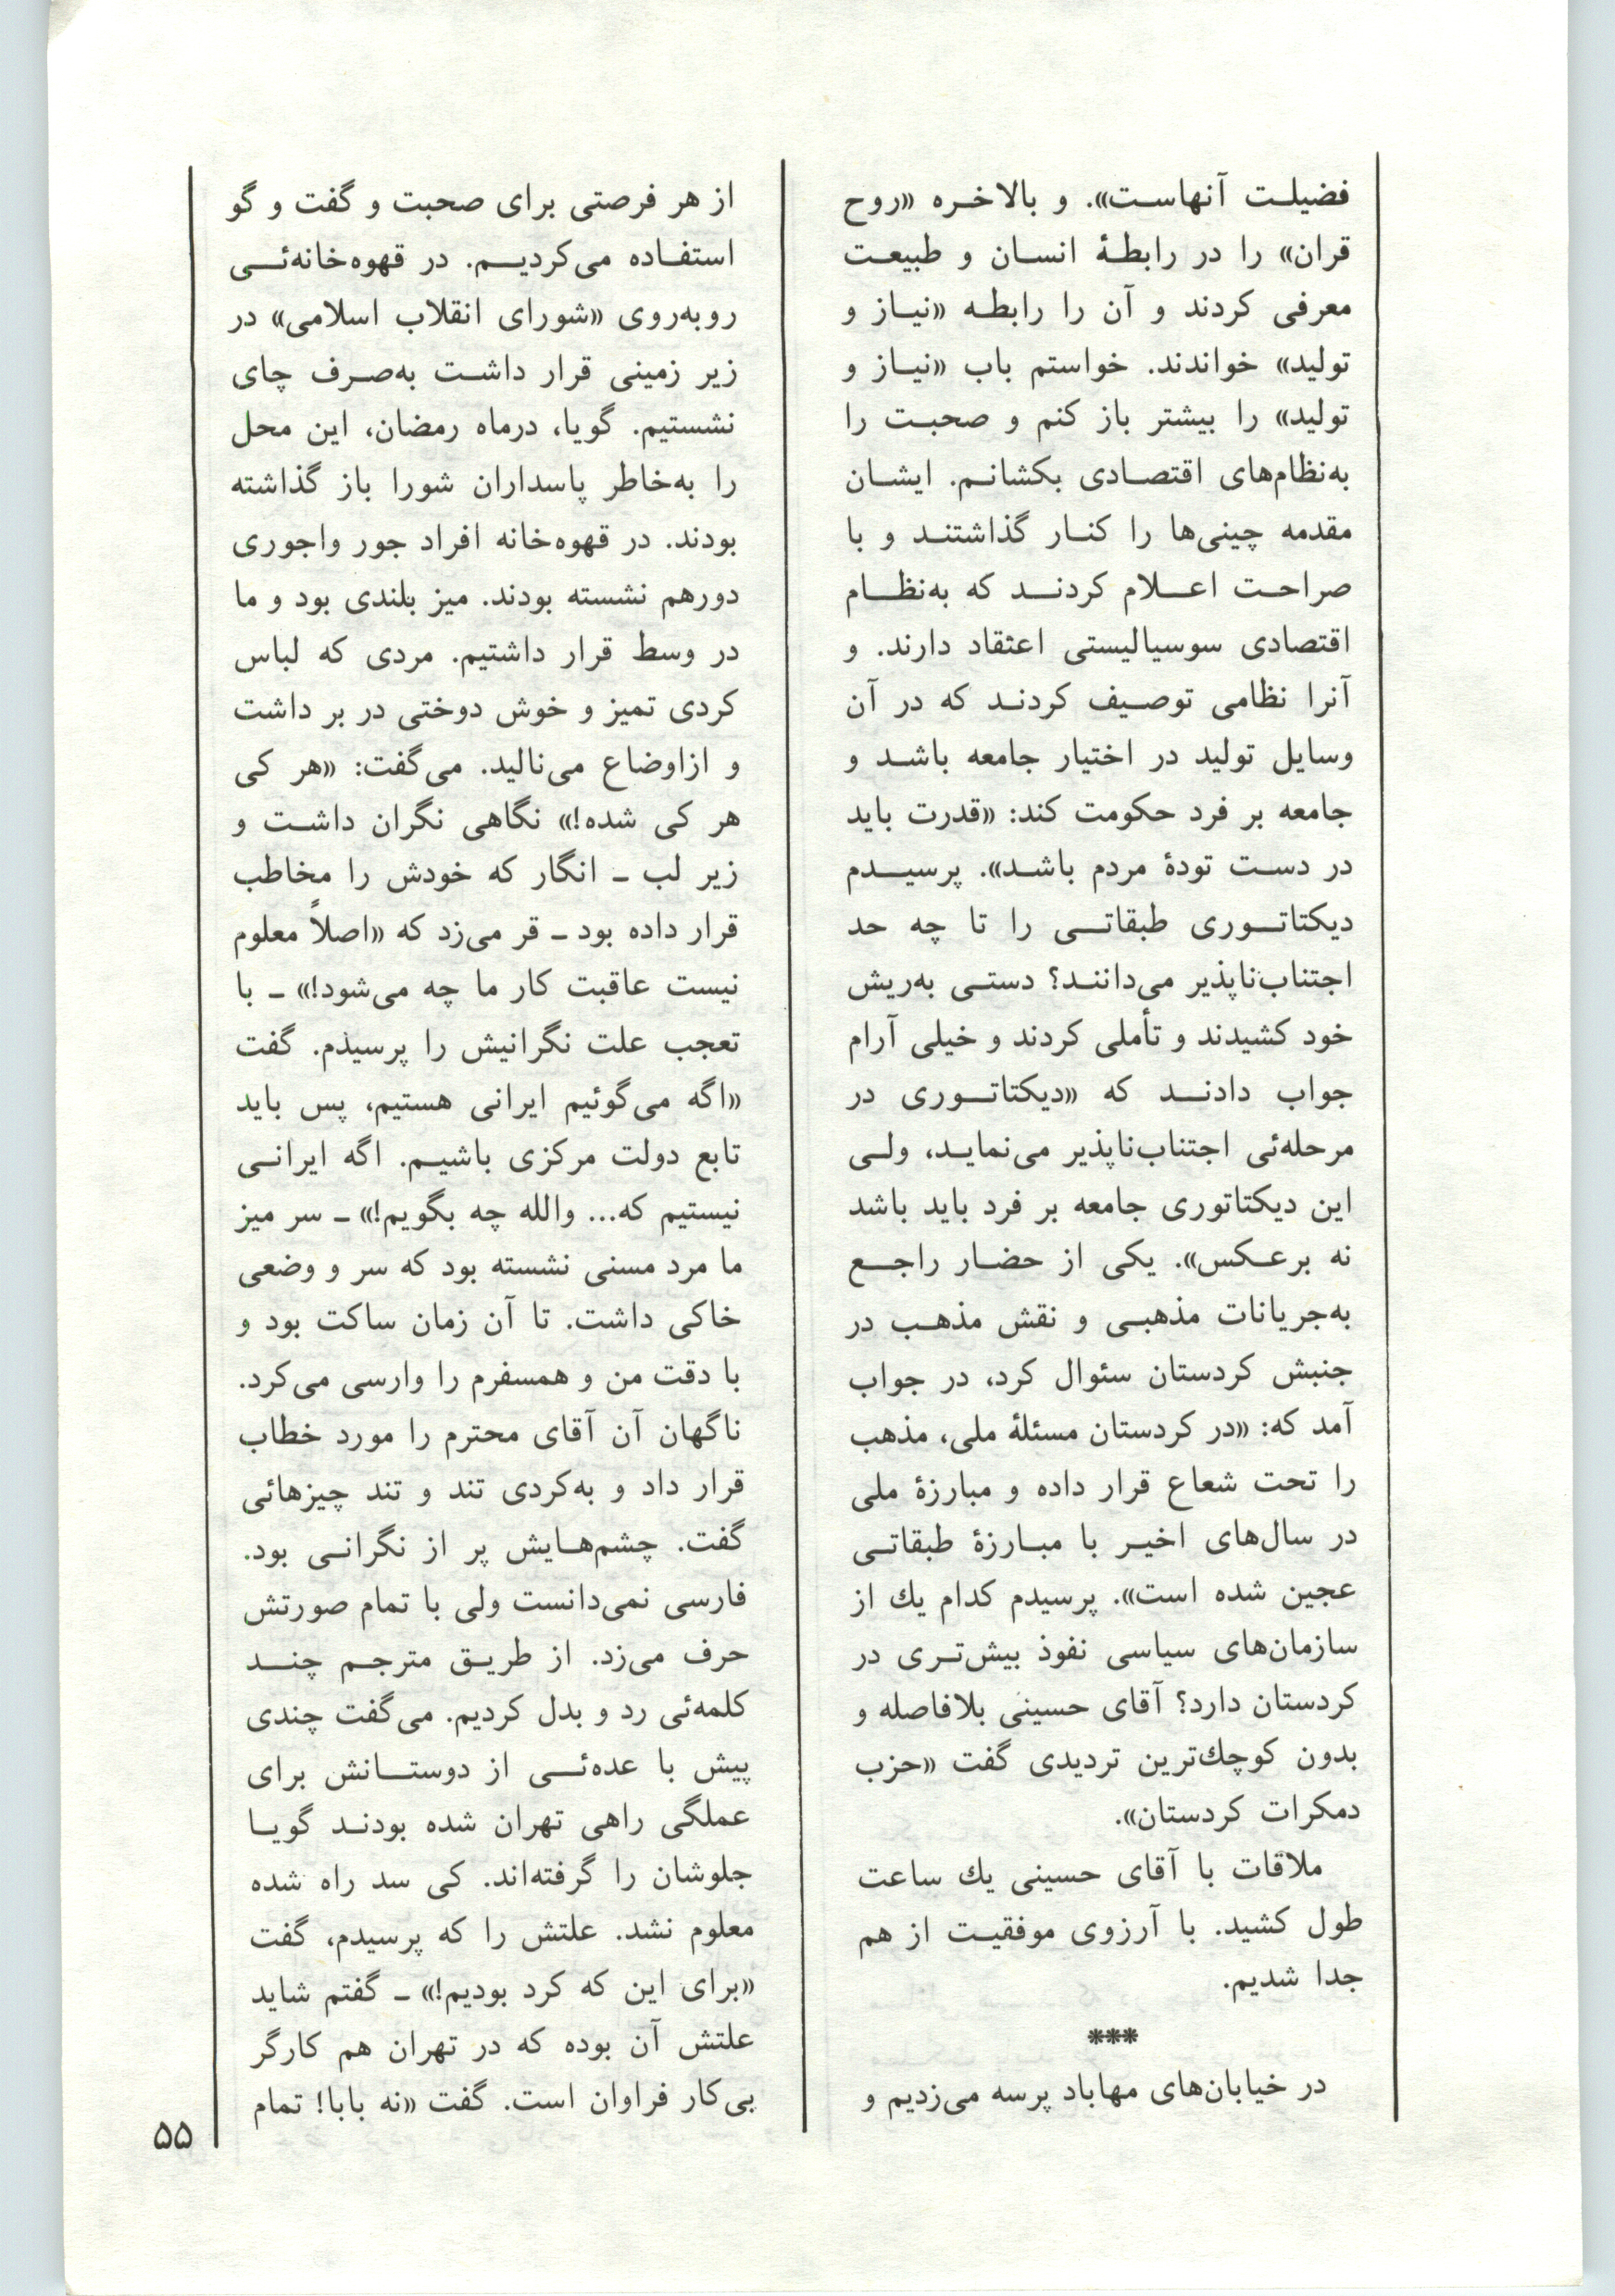 فضیلت آنهاست». و بالاخره «روح
قران» را در رابطهٔ انسان و طبیعت
معرفی کردند و آن را رابطه «نیاز و
تولید» خواندند. خواستم باب «نیاز و
تولید» را بیشتر باز کنم و صحبت را
به‌نظام‌های اقتصادی بکشانم. ایشان
مقدمه چینی‌ها را کنار گذاشتند و با
صراحت اعلام کردند که به‌نظام
اقتصادی سوسیالیستی اعتقاد دارند. و
آنرا نظامی توصیف کردند که در آن
وسایل تولید در اختیار جامعه باشد و
جامعه بر فرد حکومت کند: «قدرت باید
در دست تودهٔ مردم باشد». پرسیدم
دیکتاتوری طبقاتی را تا چه حد
اجتناب‌ناپذیر می‌دانند؟ دستی به‌ریش
خود کشیدند و تأملی کردند و خیلی آرام
جواب دادند که «دیکتاتوری در
مرحله‌ئی اجتناب‌ناپذیر می‌نماید، ولی
این دیکتاتوری جامعه بر فرد باید باشد
نه برعکس». یکی از حضار راجع
به‌جریانات مذهبی و نقش مذهب در
جنبش کردستان سئوال کرد، در جواب
آمد که: «در کردستان مسئلهٔ ملی، مذهب
را تحت شعاع قرار داده و مبارزهٔ ملی
در سال‌های اخیر با مبارزهٔ طبقاتی
عجین شده است». پرسیدم کدام یك از
سازمان‌های سیاسی نفوذ بیش‌تری در
کردستان دارد؟ آقای حسینی بلافاصله و
بدون کوچك‌ترین تردیدی گفت «حزب
دمکرات کردستان».
ملاقات با آقای حسینی یك ساعت
طول کشید. با آرزوی موفقیت از هم
جدا شدیم.
***
در خیابان‌های مهاباد پرسه می‌زدیم و
از هر فرصتی برای صحبت و گفت و گو
استفاده می‌کردیم. در قهوه‌خانه‌ئی
روبه‌روی «شورای انقلاب اسلامی» در
زیر زمینی قرار داشت به‌صرف چای
نشستیم. گویا، درماه رمضان، این محل
را به‌خاطر پاسداران شورا باز گذاشته
بودند. در قهوه‌خانه افراد جور واجوری
دورهم نشسته بودند. میز بلندی بود و ما
در وسط قرار داشتیم. مردی که لباس
کردی تمیز و خوش دوختی در بر داشت
و ازاوضاع می‌نالید. می‌گفت: «هر کی
هر کی شده!» نگاهی نگران داشت و
زیر لب ـ انگار که خودش را مخاطب
قرار داده بود ـ قر می‌زد که «اصلاً معلوم
نیست عاقبت کار ما چه می‌شود!» ـ با
تعجب علت نگرانیش را پرسیذم. گفت
«اگه می‌گوئیم ایرانی هستیم، پس باید
تابع دولت مرکزی باشیم. اگه ایرانی
نیستیم که... والله چه بگویم!» ـ سر میز
ما مرد مسنی نشسته بود که سر و وضعی
خاکی داشت. تا آن زمان ساکت بود و
با دقت من و همسفرم را وارسی می‌کرد.
ناگهان آن آقای محترم را مورد خطاب
قرار داد و به‌کردی تند و تند چیزهائی
گفت. چشم‌هایش پر از نگرانی بود.
فارسی نمی‌دانست ولی با تمام صورتش
حرف می‌زد. از طریق مترجم چند
کلمه‌ئی رد و بدل کردیم. می‌گفت چندی
پیش با عده‌ئی از دوستانش برای
عملگی راهی تهران شده بودند گویا
جلوشان را گرفته‌اند. کی سد راه شده
معلوم نشد. علتش را که پرسیدم، گفت
«برای این که کرد بودیم!» ـ گفتم شاید
علتش آن بوده که در تهران هم کارگر
بی‌کار فراوان است. گفت «نه بابا! تمام
۵۵